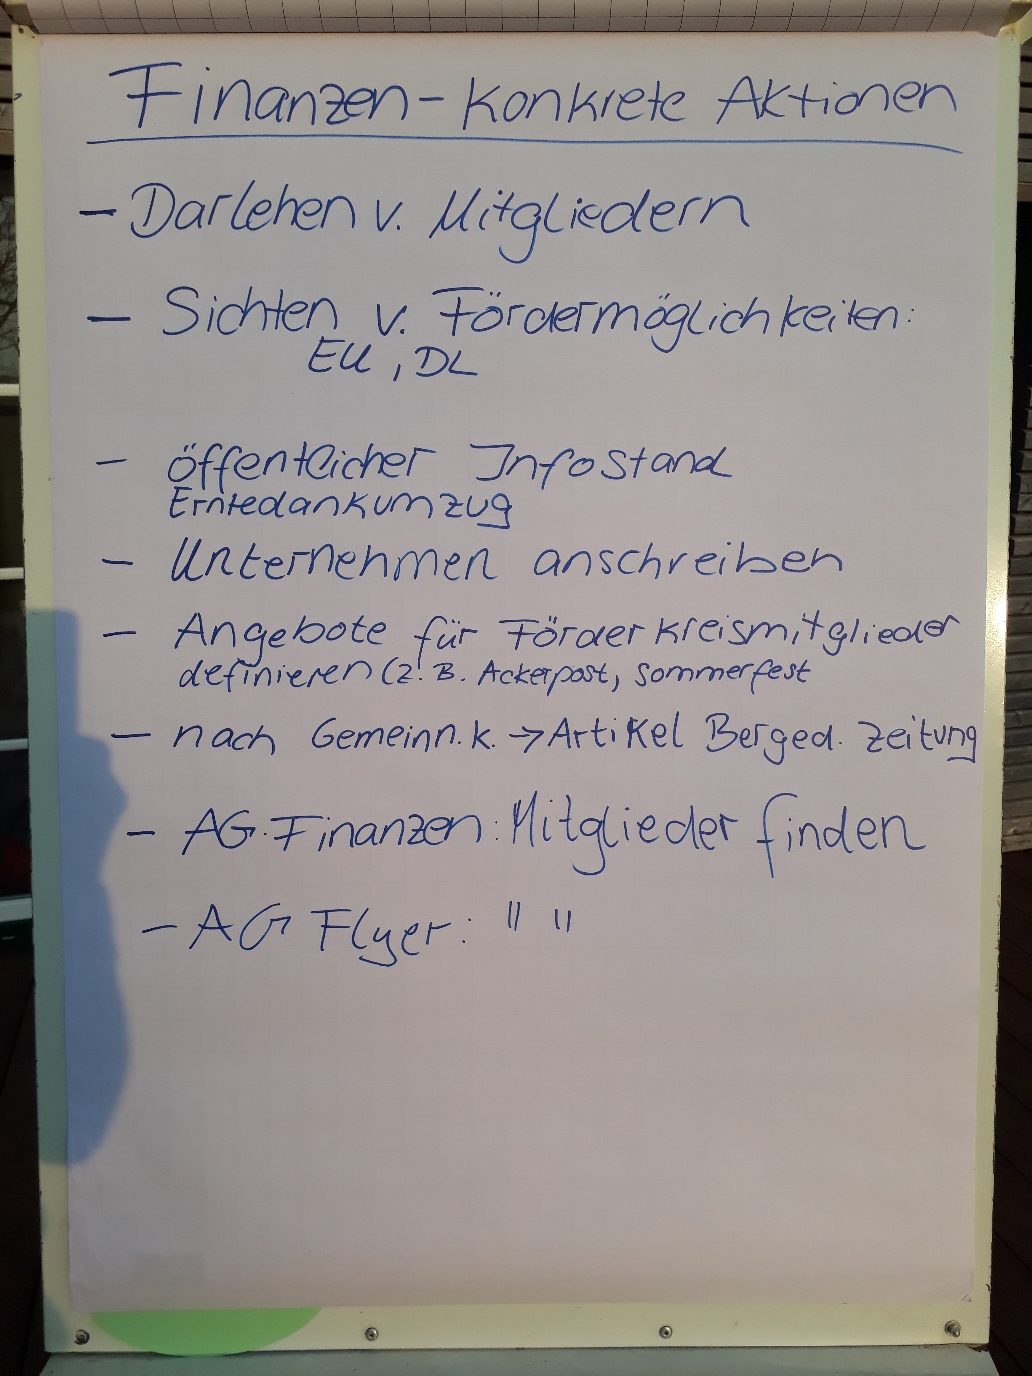 Finanzen - Konkrete Aktionen
- Darlehen v. Mitgliedern
- Sichten v. Fördermöglichkeiten:
EU, DL
- öffentlicher Infostand
Erntedankumzug
- Unternehmen anschreiben
- Angebote für Förderkreismitglieder
definieren (z.B. Ackerpost, Sommerfest
- nach Gemeinn.k. → Artikel Berged. Zeitung
- AG Finanzen: Mitglieder finden
- AG Flyer: " "